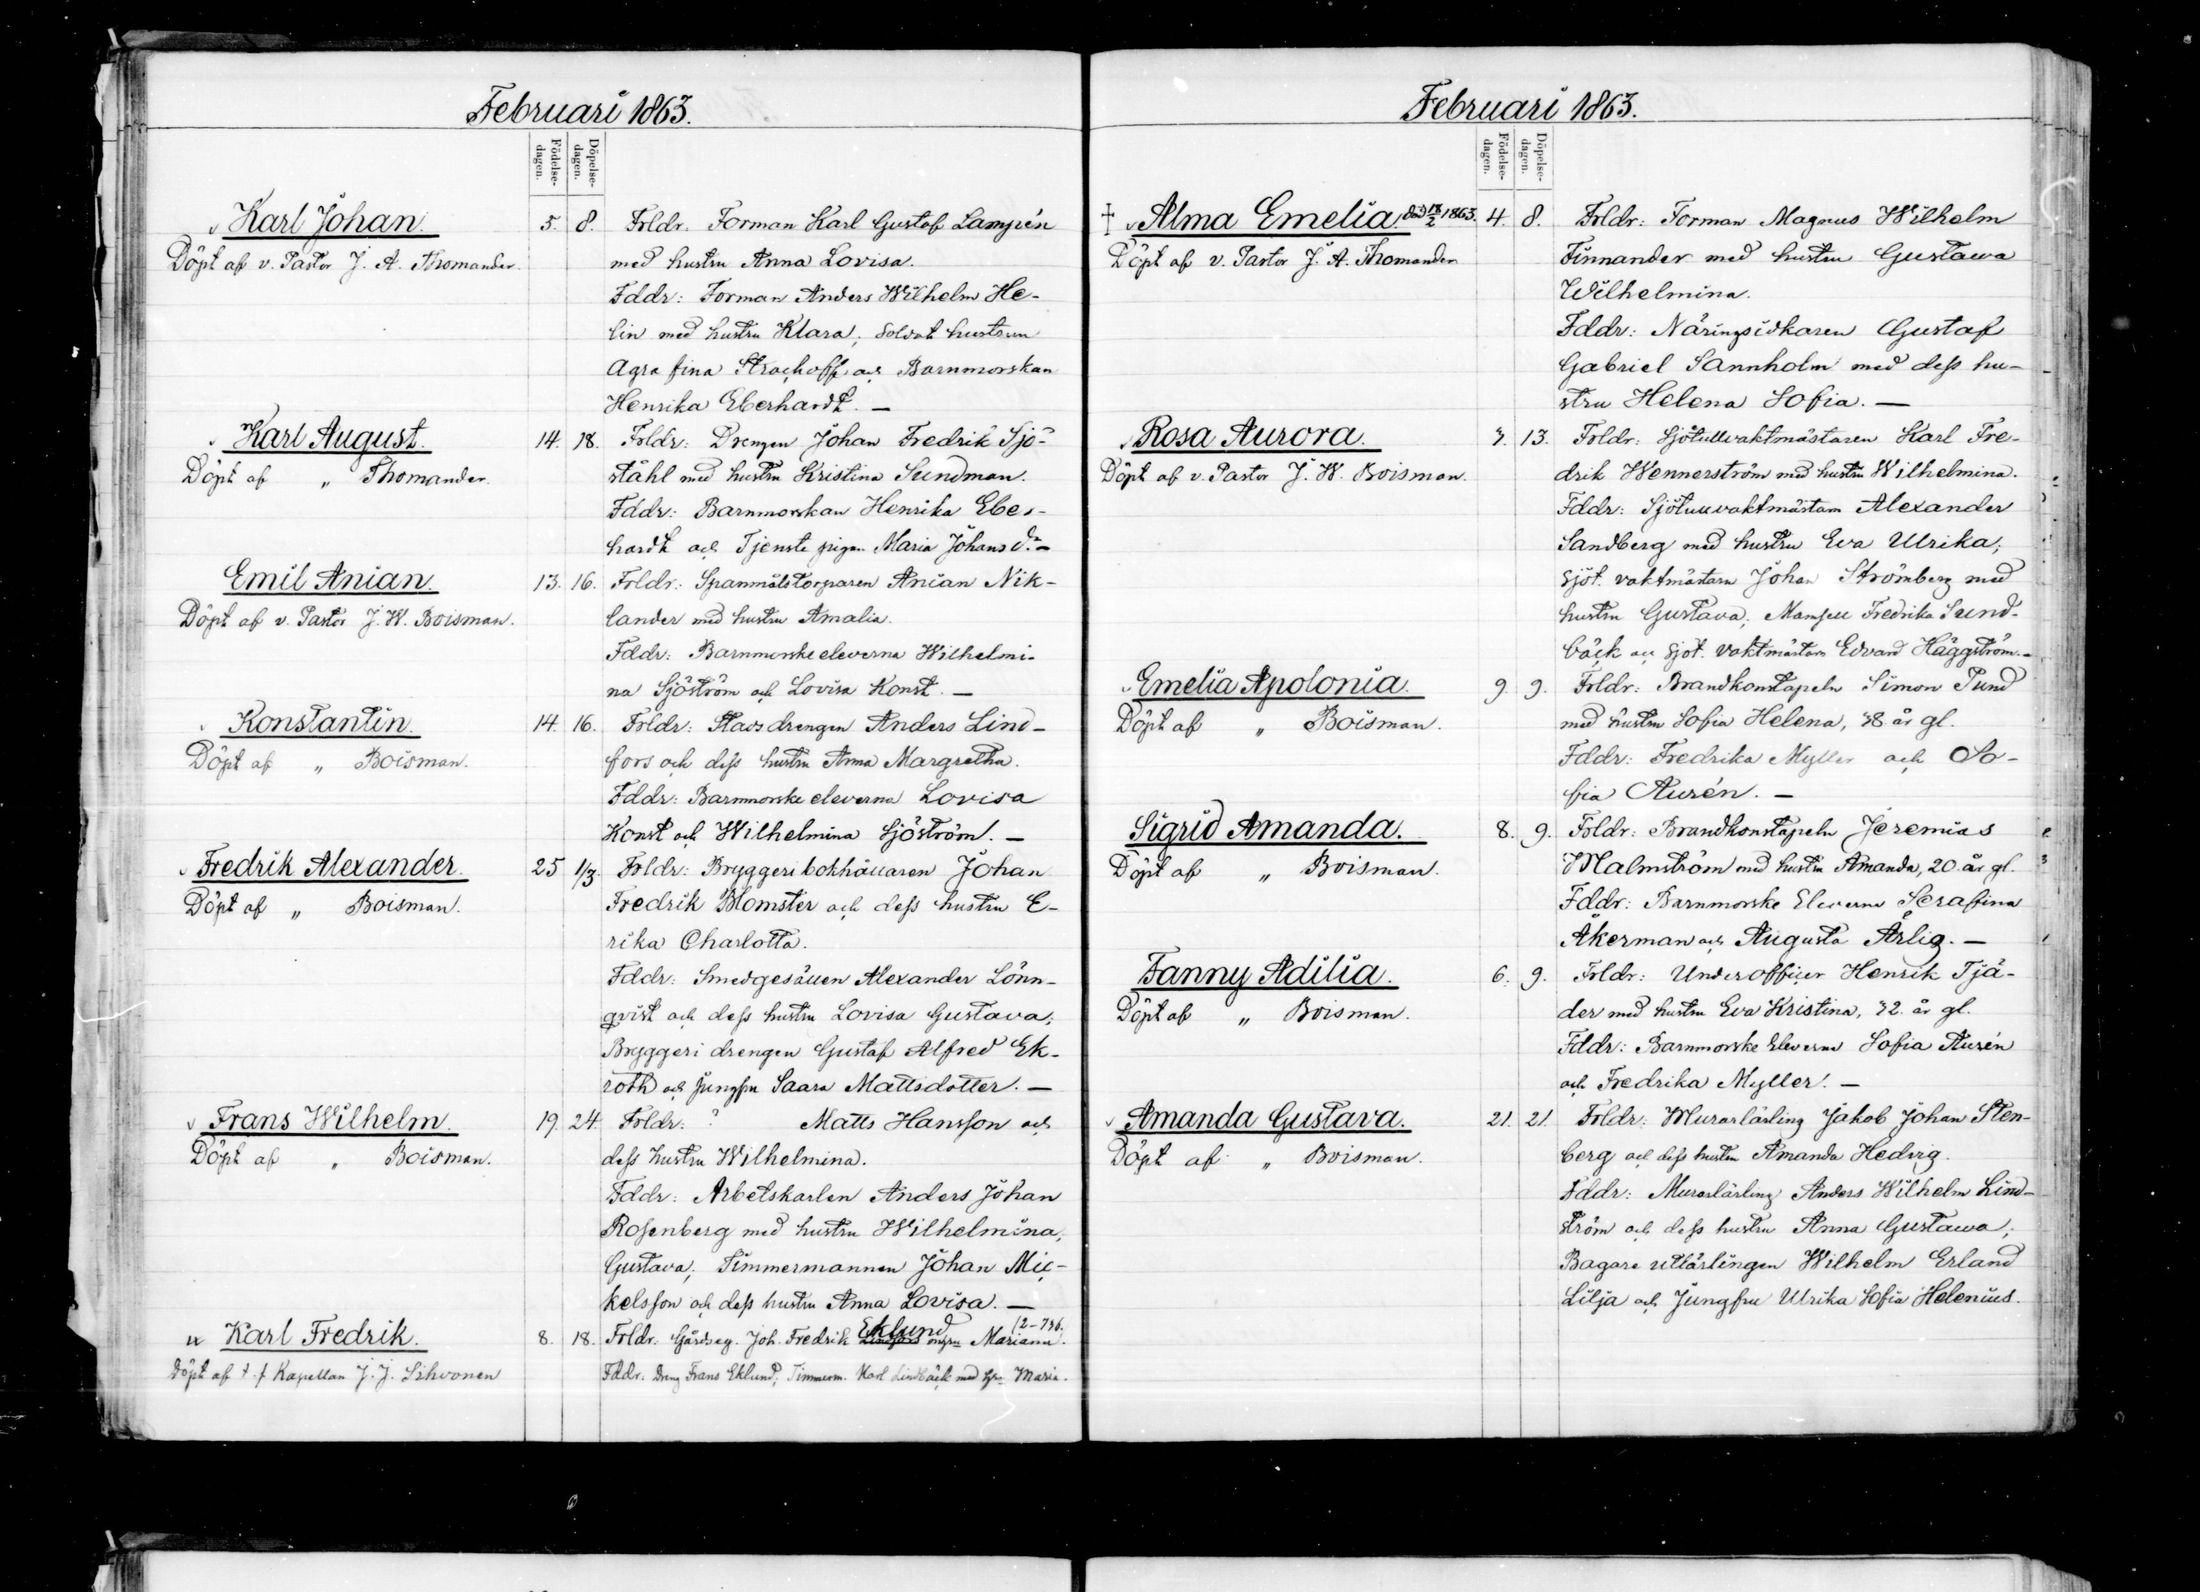 Februari 1863.
Födelse-dagen.
Döpelse-dagen.
Karl Johan. 5. 8. Frldr. Forman Karl Gustaf Lampén
Döpt af v. Pastor J. A. Thomander. med hustru Anna Lovisa.
Fddr: Forman Anders Wilhelm He-
lin med hustru Klara; Soldat hustrun
Agrafina Strachoff och Barnmorskan
Henrika Eberhardt. —
Karl August. 14. 18. Frldr: Drengen Johan Fredrik Sjö-
Döpt af „ Thomander. ståhl med hustru Kristina Sundman.
Fddr: Barnmorskan Henrika Eber-
hardt och Tjenste pigan Maria Johansdr. —
Emil Anian. 13. 16. Frldr: Spanmålstorparen Anian Nik-
Döpt af v. Pastor J. W. Boisman. lander med hustru Amalia.
Fddr: Barnmorske eleverna Wilhelmi-
na Sjöström och Lovisa Konst. —
Konstantin. 14. 16. Frldr: Stadsdrengen Anders Lind-
Döpt af „ Boisman. fors och dess hustru Anna Margretha.
Fddr: Barnmorske eleverna Lovisa
Konst och Wilhelmina Sjöström. —
Fredrik Alexander. 25 1/3. Frldr: Bryggeribokhållaren Johan
Döpt af „ Boisman. Fredrik Blomster och dess hustru E-
rika Charlotta.
Fddr: Smedgesällen Alexander Lönn-
qvist och dess hustru Lovisa Gustava;
Bryggeri drengen Gustaf Alfred Ek-
roth och jungfru Saara Mattsdotter. —
Frans Wilhelm. 19. 24. Frldr: ? Matts Hansson och
Döpt af „ Boisman. dess hustru Wilhelmina.
Fddr: Arbetskarlen Anders Johan
Rosenberg med hustru Wilhelmina
Gustava; Timmermannen Johan Mic-
kelsson och dess hustru Anna Lovisa. —
Karl Fredrik. 8. 18. Frldr. Gårdseg. Joh. Fredrik Eklund Mariana. 12-736.
Döpt af t. f. Kapellan J. J. Sihvonen Fddr: Dreng Frans Eklund, Timmerm. Karl Lindbäck med hu Maria.
Februari 1863.
Födelse-dagen.
Döpelse-dagen.
† Alma Emelia. död 18/2 1863. 4. 8. Frldr: Forman Magnus Wilhelm
Döpt af v. Pastor J. A. Thomander Finnander med hustru Gustawa
Wilhelmina.
Fddr: Näringsidkaren Gustaf
Gabriel Sannholm med dess hu-
stru Helena Sofia. —
Rosa Aurora. 7. 13. Frldr: Sjötullvaktmästaren Karl Fre-
Döpt af v. Pastor J. W. Boisman. drik Wennerström med hustru Wilhelmina.
Fddr: Sjötullvaktmästarn Alexander
Sandberg med hustru Eva Ulrika;
Sjöt. vaktmästarn Johan Strömberg med
hustru Gustava; Mamsell Fredrika Sund-
bäck och Sjöt. Vaktmästarn Edvard Häggström. —
Emelia Apolonia. 9. 9. Frldr: Brandkonstapeln Simon Pund
Döpt af „ Boisman. med hustru Sofia Helena, 38 år gl.
Fddr: Fredrika Myller och So-
fia Aurén. —
Sigrid Amanda. 8. 9. Frldr: Brandkonstapeln Jeremias
Döpt af „ Boisman. Malmström med hustru Amanda, 20 år gl.
Fddr: Barnmorske Eleverna Serafina
Åkerman och Augusta Ärlig. —
Fanny Adilia. 6. 9. Frldr: Underofficer Henrik Tjä-
Döpt af „ Boisman. der med hustru Eva Kristina, 32. år gl.
Fddr: Barnmorske Eleverna Sofia Aurén
och Fredrika Myller. —
Amanda Gustava. 21. 21. Frldr: Murarlärling Jakob Johan Sten-
Döpt af „ Boisman. berg och dess hustru Amanda Hedvig.
Fddr: Murarlärling Anders Wilhelm Lind-
ström och dess hustru Anna Gustawa;
Bagare utlärlingen Wilhelm Erland
Lilja och Jungfru Ulrika Sofia Helenius.